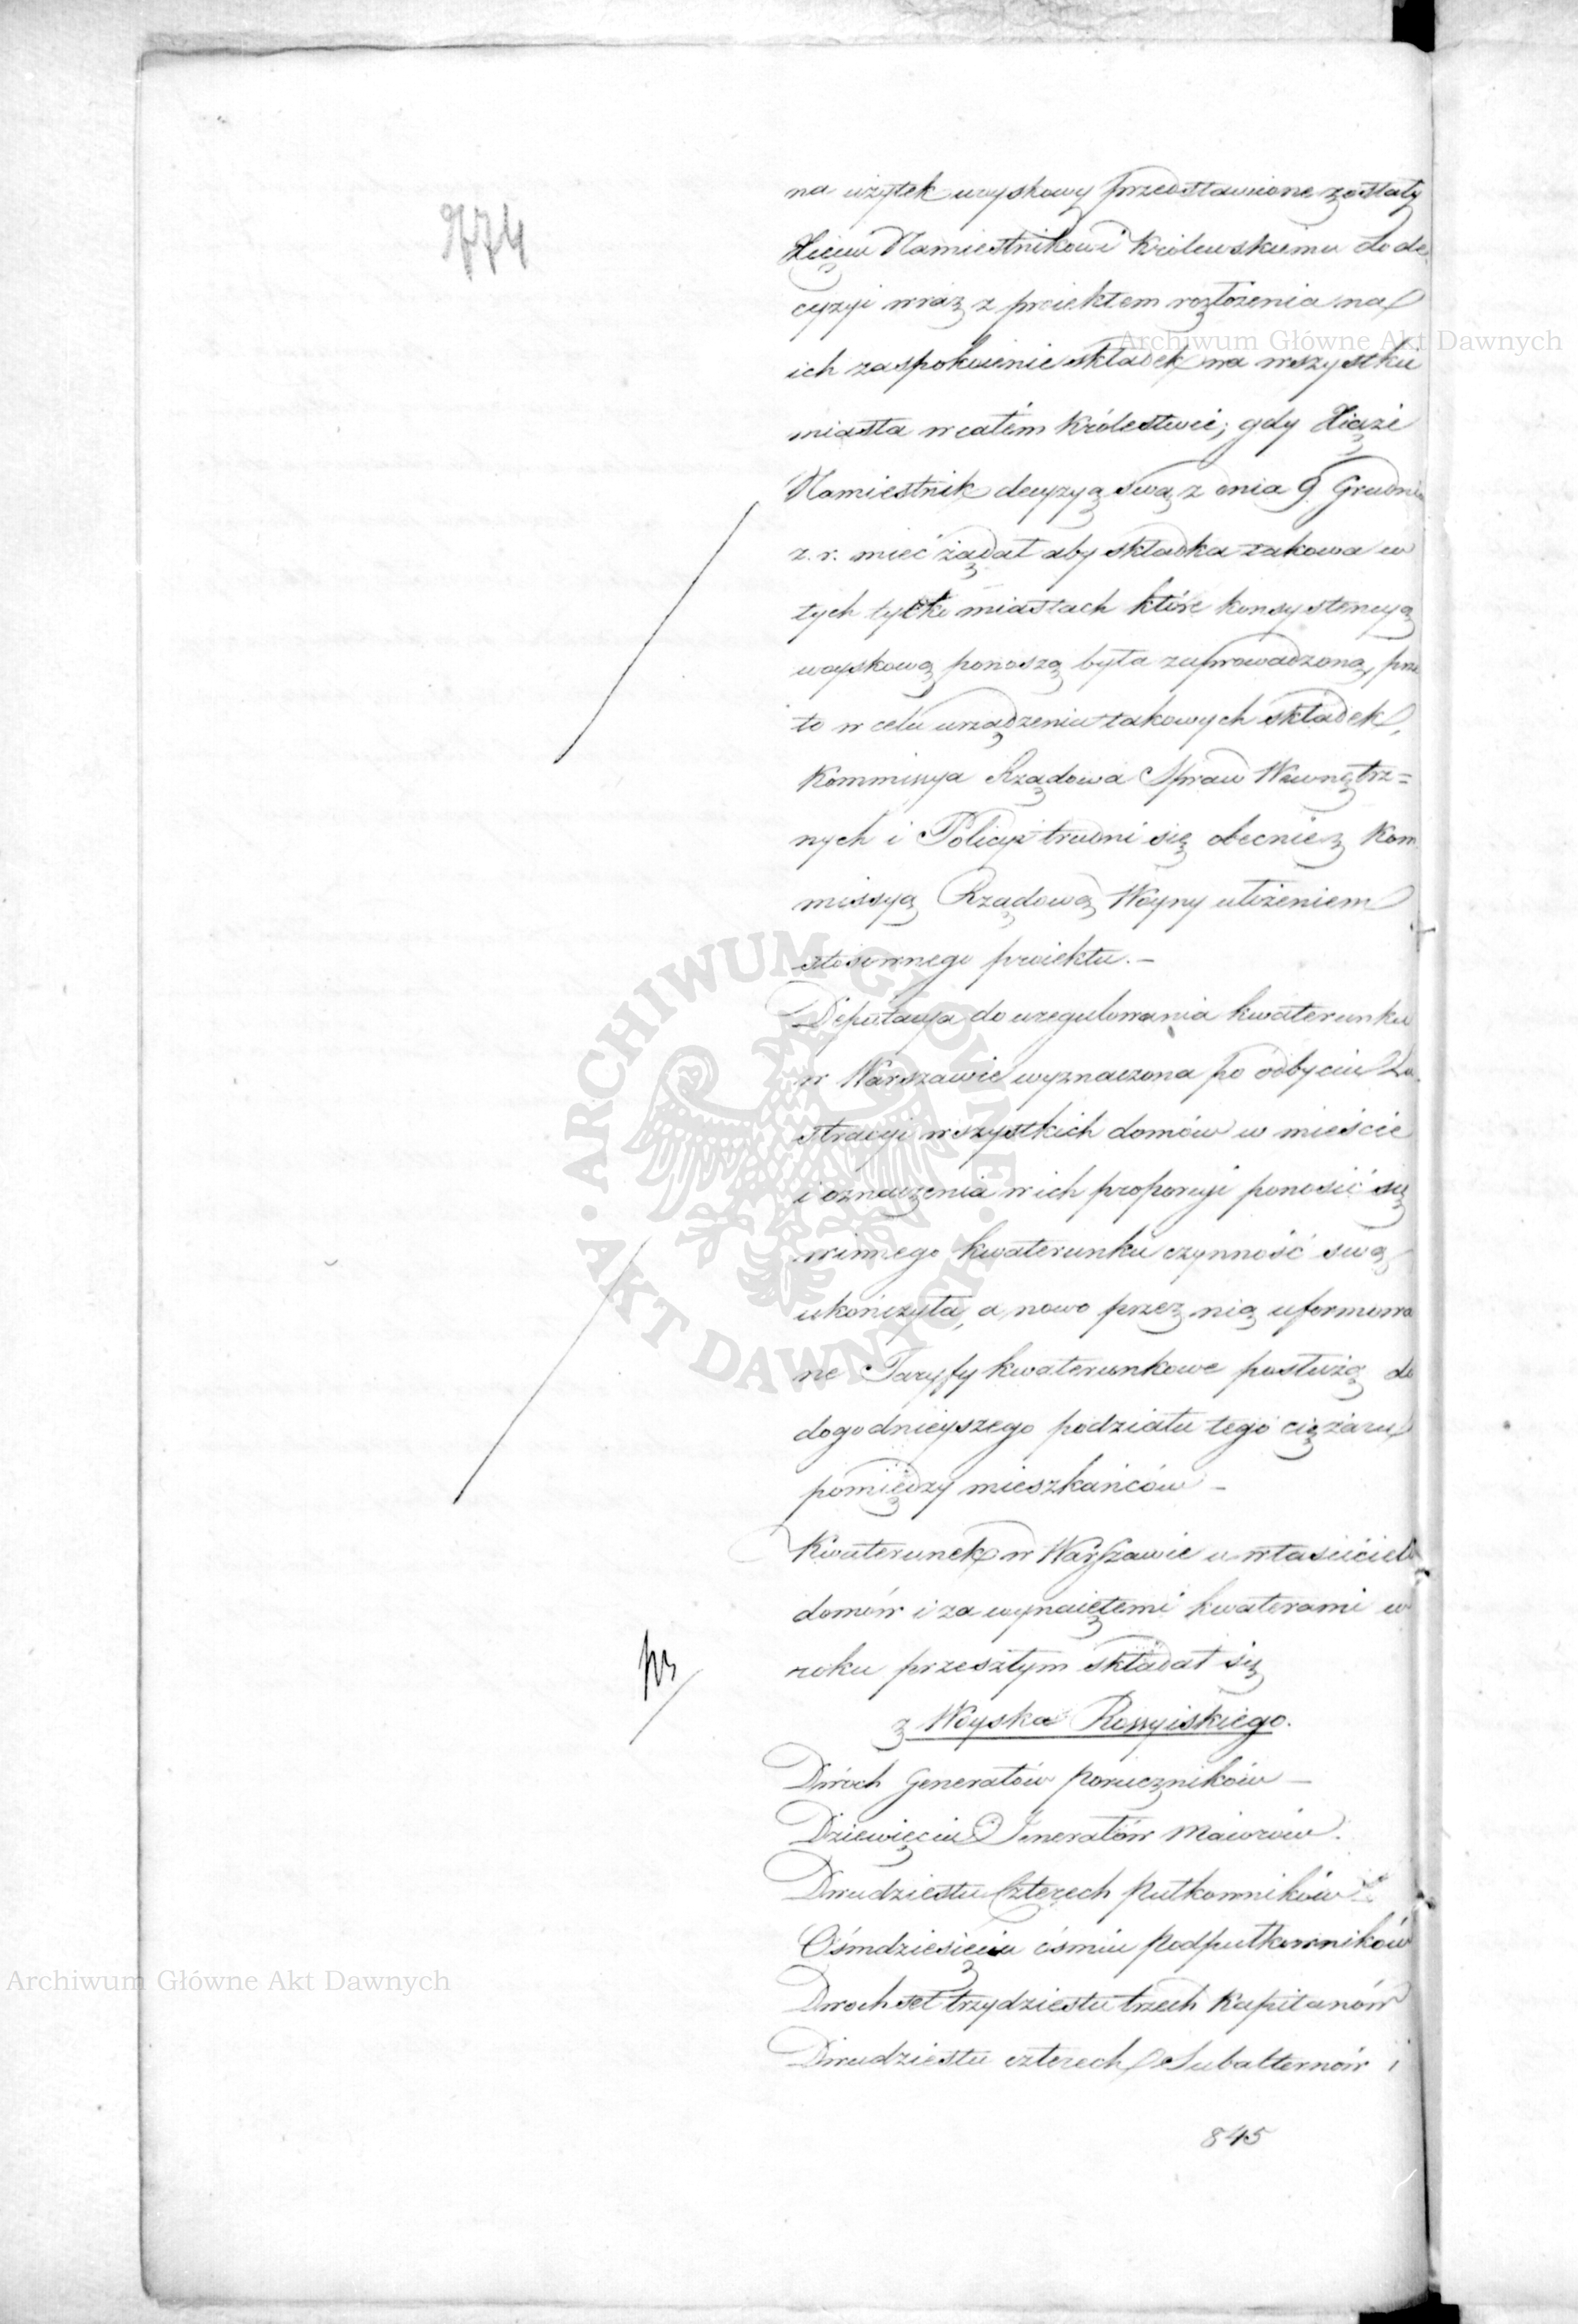 774
na użytek woyskowy przedstawione zostały
Xięciu Namiestnikowi Królewskiemu do de
cyzyi wraz z proiektem rozłożenia na
ich zaspokoienie składek na wszystkie
miasta w całém Królestwie; gdy Xiąże
Namiestnik decyzyą swą z dnia 9 Grudnia
z. r. mieć żądał aby składka takowa w
tych tylko miastach które konsystencyą
woyskową ponoszą była zaprowadzoną, prze
to w celu urządzenia takowych składek,
Kommissya Rządowa Spraw Wewnętrz=
nych i Policyi trudni się obecnie z Kom
missyą Rządową Woyny ułożeniem
stosownego proiektu.—
Deputacya do uregulowania kwaterunku
w Warszawie wyznaczona po odbyciu Lu
stracyi wszystkich domów w mieście
i oznaczenia w ich proporcyi ponosić się
winnego kwaterunku czynność swą
ukończyła, a nowo przez nią uformowa
ne Taryfy kwaterunkowe posłużą do
dogodnieyszego podziału tego ciężaru
pomiędzy mieszkańców —
Kwaterunek w Warszawie u właścicieli
domów i za wynaiętemi kwaterami w
roku przeszłym składał się
z Woyska Rossyiskiego.
Dwóch Generałów Poruczników —
Dziewięciu Jenerałów Maiorów.
Dwudziestu Czterech Pułkowników
Ośmdziesięciu ośmiu Podpułkowników
Dwóchset trzydziestu trzech Kapitanów
Dwudziestu czterech Subalternów i
845
Archiwum Główne Akt Dawnych
ARCHIWUM GŁÓWNE · AKT DAWNYCH ·
Archiwum Główne Akt Dawnych